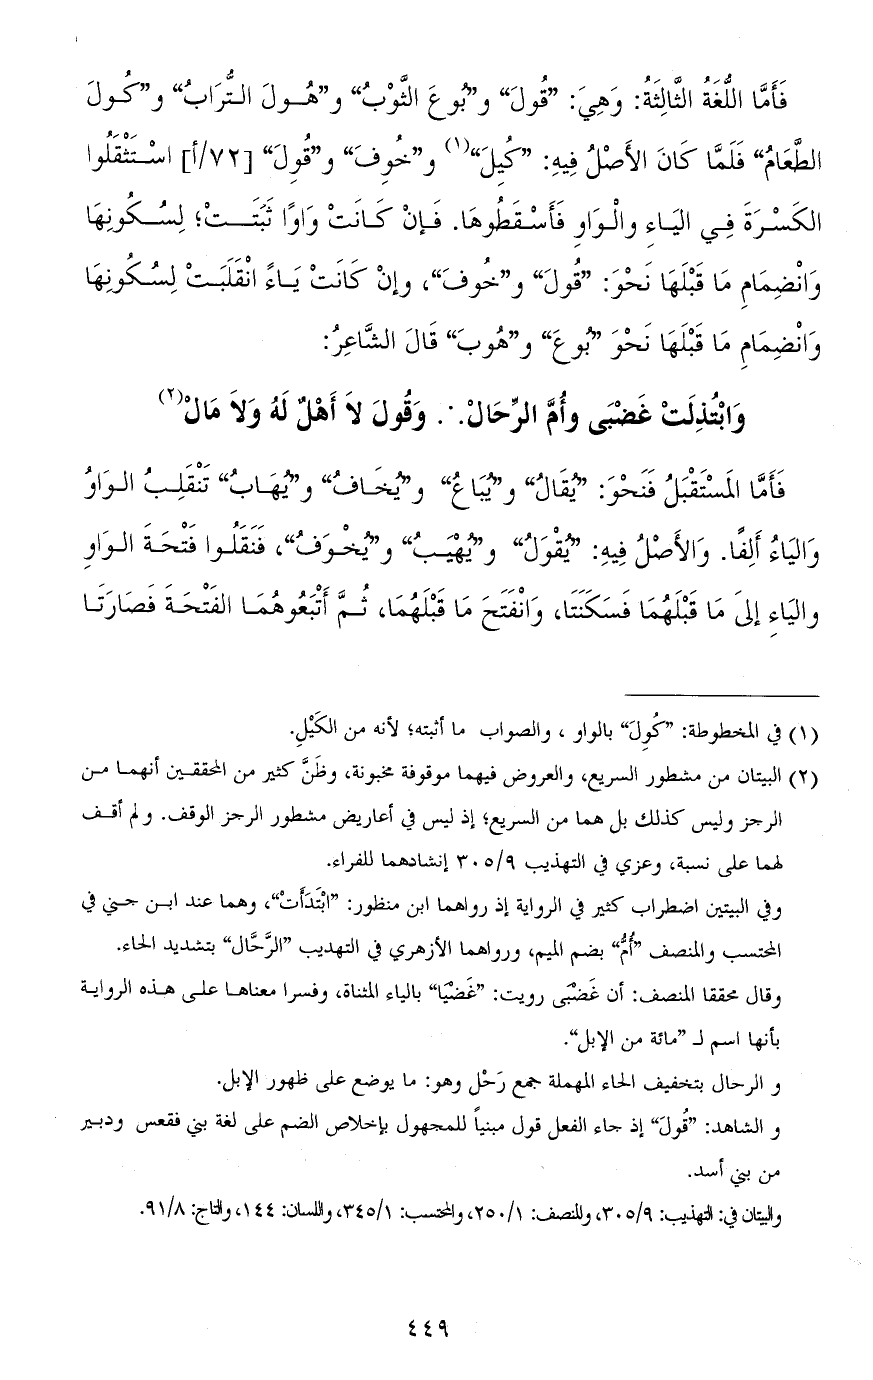 فَأَمَّا اللُّغَةُ الثَّالِثَةُ: وَهِيَ: "قُولَ" و"بُوعَ الثَّوْبُ" و"هُـولَ التُّرَابُ" و"كُـولَ
الطَّعَامُ" فَلَمَّا كَانَ الأَصْلُ فِيهِ: "كُيِلَ"(١) و"خُوِفَ" و"قُوِلَ" [٧٢/أ] اسْـتَثْقَلُوا
الكَسْـرَةَ فِـي اليَـاءِ والْـوَاوِ فَأَسْـقَطُوهَا. فَـإنْ كَـانَتْ وَاوًا ثَبَتَـتْ؛ لِسُـكُونِهَا
وَانْضِمَامِ مَا قَبْلَهَا نَحْوَ: "قُولَ" و"خُوفَ"، وإنْ كَانَتْ يَـاءً انْقَلَبَـتْ لِسُـكُونِهَا
وَانْضِمَامِ مَا قَبْلَهَا نَحْوَ "بُوعَ" و"هُوبَ" قَالَ الشَّاعِرُ:
وَابْتُذِلَتْ غَضْبَى وأُمَّ الرِّحَالْ .·. وَقُولَ لاَ أَهْلٌ لَهُ وَلاَ مَالْ(٢)
فَأَمَّا المَسْتَقْبَلُ فَنَحْوَ: "يُقَالُ" و"يُبَاعُ" و"يُخَـافُ" و"يُهَـابُ" تَنْقَلِـبُ الـوَاوُ
وَاليَاءُ أَلِفًا. وَالأَصْلُ فِيهِ: "يُقْوَلُ" و"يُهْيَـبُ" و"يُخْـوَفُ"، فَنَقَلُـوا فَتْحَـةَ الـوَاوِ
والْيَاءِ إلىَ مَا قَبْلَهُمَا فَسَكَنَتَا، وَانْفَتَحَ مَا قَبْلَهُمَا، ثُـمَّ أَتْبَعُوهُمَـا الفَتْحَـةَ فَصَارَتَـا
(١) في المخطوطة: "كُوِلَ" بالواو ، والصواب ما أثبته؛ لأنه من الكَيْلِ.
(٢) البيتان من مشطور السريع، والعروض فيهما موقوفة مخبونة، وظَنَّ كثير من المحققـين أنهمـا مـن
الرجز وليس كذلك بل هما من السريع؛ إذ ليس في أعاريض مشطور الرجز الوقف. و لم أقـف
لهما على نسبة، وعزي في التهذيب ٣٠٥/٩ إنشادهما للفراء.
وفي البيتين اضطراب كثير في الرواية إذ رواهما ابن منظور: "ابْتَدَأَتْ"، وهما عند ابـن جـني في
المحتسب والمنصف "أُمُّ" بضم الميم، ورواهما الأزهري في التهذيب "الرَّحَّال" بتشديد الحاء.
وقال محققا المنصف: أن غَضْبَى رويت: "غَضْيَا" بالياء المثناة، وفسرا معناهـا علـى هـذه الروايـة
بأنها اسم لـ "مائة من الإبل".
و الرحال بتخفيف الحاء المهملة جمع رَحْل وهو: ما يوضع على ظهور الإبل.
و الشاهد: "قُولَ" إذ جاء الفعل قول مبنياً للمجهول بإخلاص الضم على لغة بني فقعس ودبـير
من بني أسد.
والبيتان في: التهذيب: ٣٠٥/٩، والمنصف: ٢٥٠/١، والمحتسب: ٣٤٥/١، واللسان: ١٤٤، والتاج: ٩١/٨.
٤٤٩